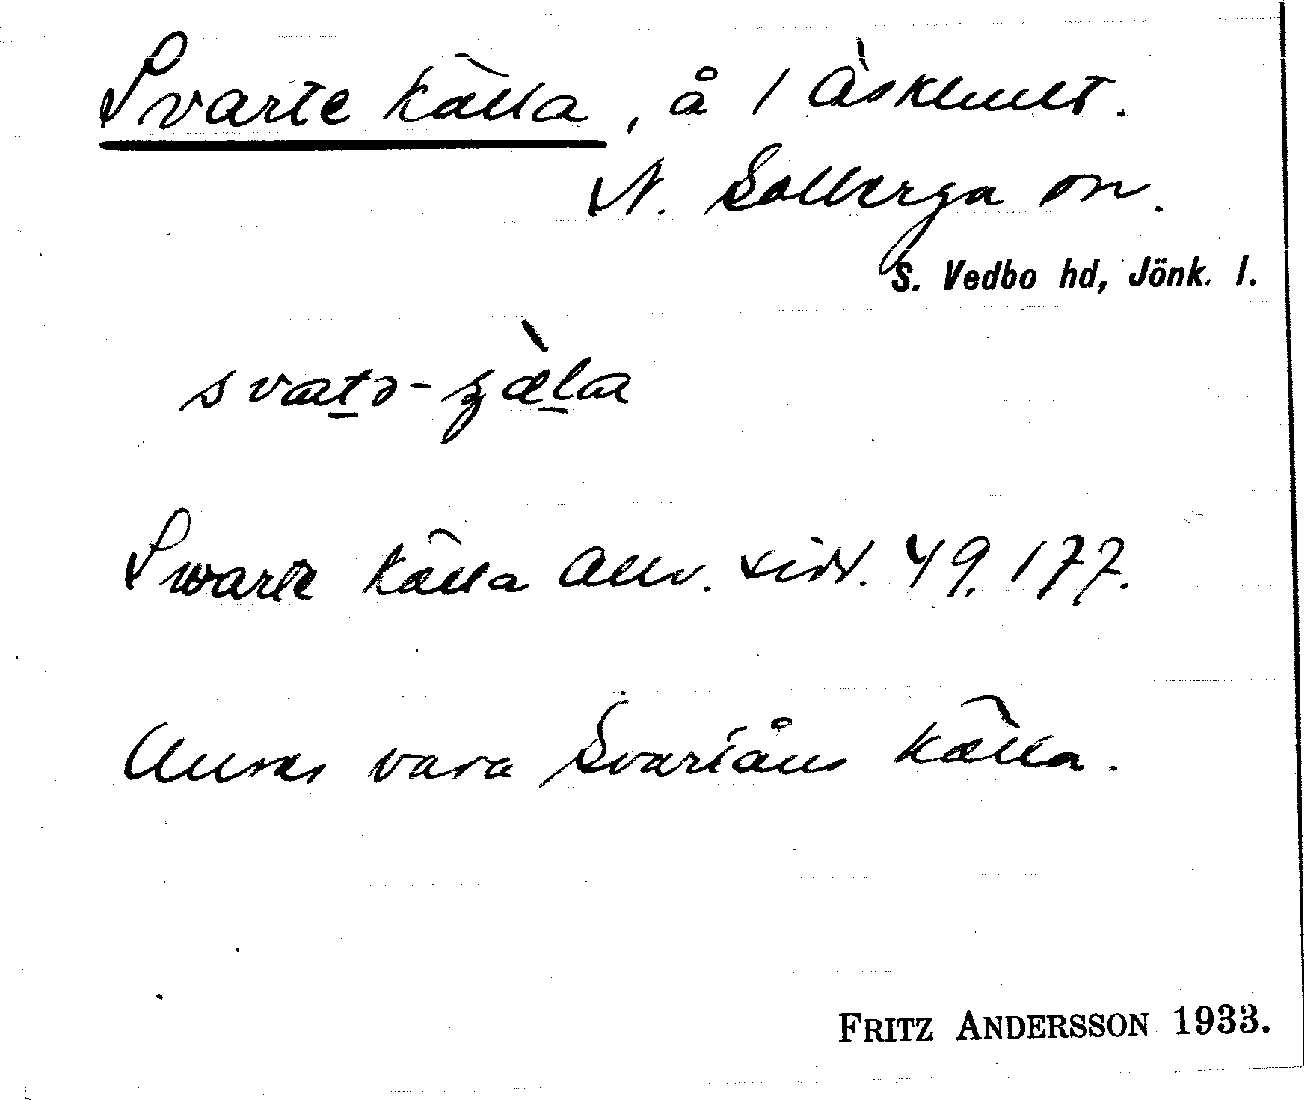 Svarte källa, å 1 Äskhult.
N. Solberga sn.
S. Vedbo hd, Jönk. l.
svatə-ʒæ̀la
Swarte källa Allv. 49, 177.
Anses vara Svartåns källa.
FRITZ ANDERSSON 1933.